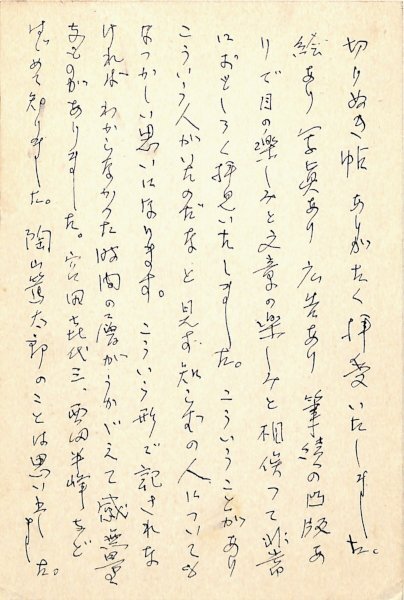 切りぬき帖 ありがたく拝受いたしました。
絵あり 写真あり 広告あり 筆蹟の凸版あ
りで目の楽しみと文章の楽しみと相俟つて非常
におもしろく拝見いたしました。こういうことがあり
こういう人がいたのだなと見ず知らずの人についても
なつかしい思いになります。こういう形で記されな
ければわからなかった時間の層がうかがえて感無量
なものがありました。宮田喜代三、西田半峰など
はじめて知りました。陶山篤太郎のことは思い出しました。